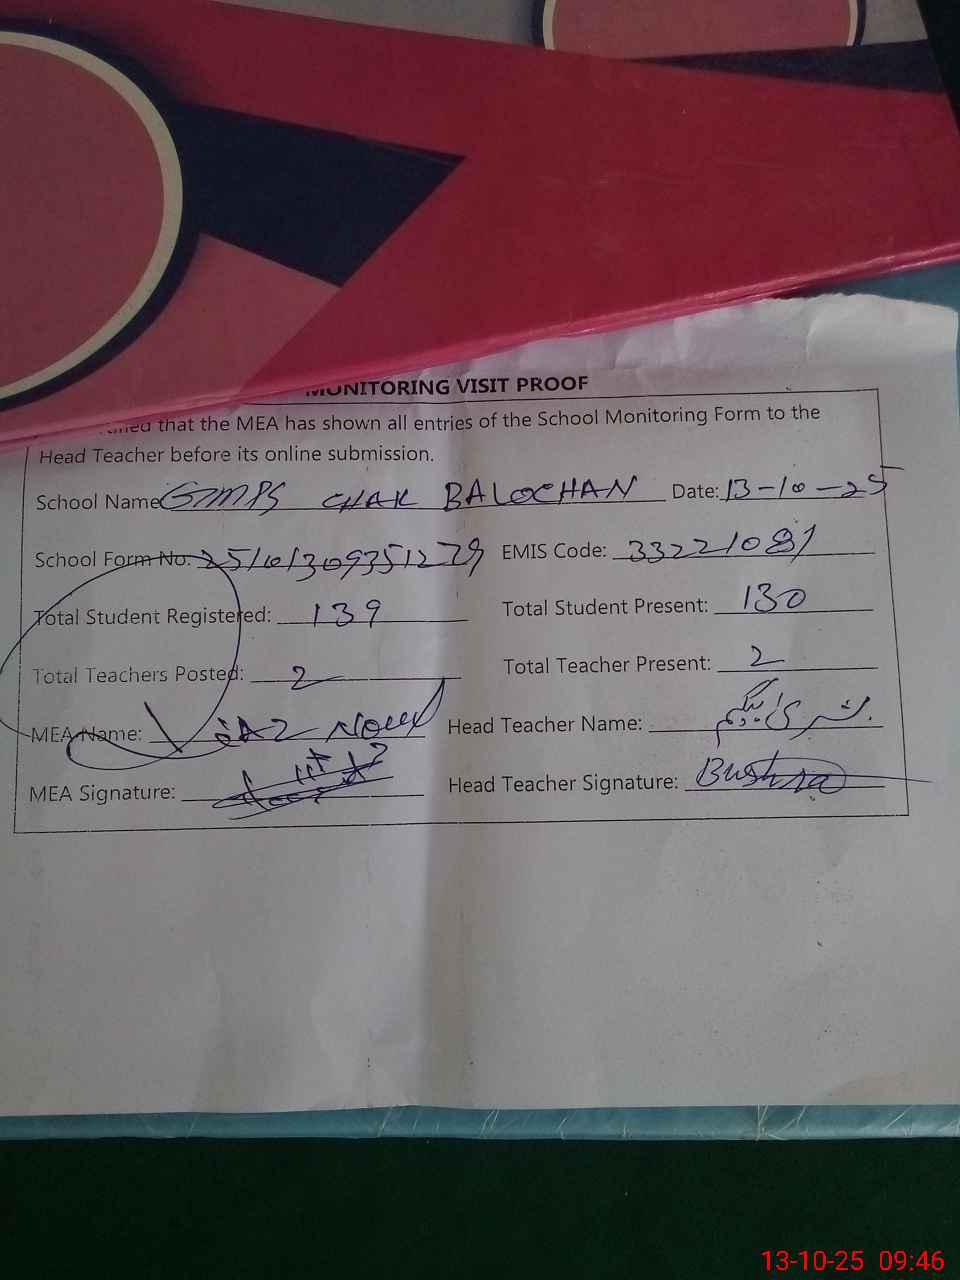 MONITORING VISIT PROOF
that the MEA has shown all entries of the School Monitoring Form to the
Head Teacher before its online submission.
School Name GMPS CHAK BALOCHAN Date: 13-10-25
School Form No. 25101309351279 EMIS Code: 33221081
Total Student Registered: 139 Total Student Present: 130
Total Teachers Posted: 2 Total Teacher Present: 2
MEA Name: Head Teacher Name: بشریٰ بیگم
MEA Signature: Head Teacher Signature: Bushra
13-10-25 09:46